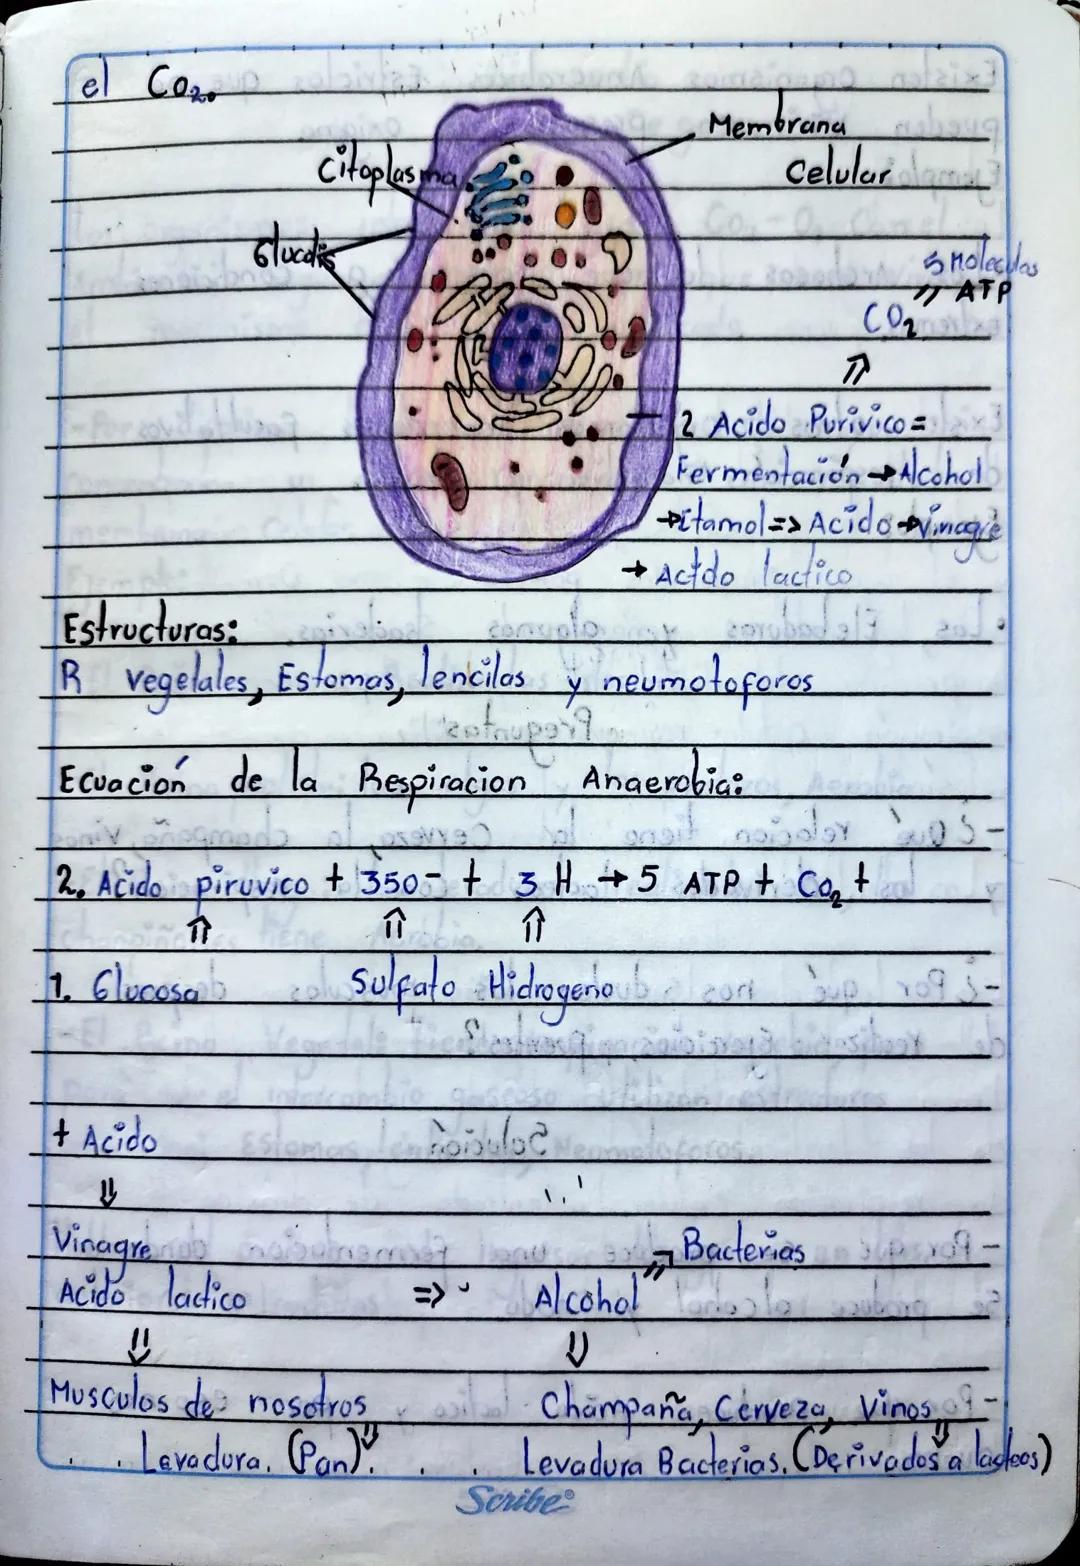 el CO₂.
Membrana
Celular
Citoplasma
5 Moleculas
ATP
CO₂
2 Acido Purivico =
Fermentación → Alcohol
→ Etamol => Acido → Vinagre
→ Acido lactico
Estructuras:
R vegetales, Estomas, lencilas y neumotoforos
Ecuación de la Respiracion Anaerobia:
2. Acido piruvico + 350- + 3 H → 5 ATP + CO₂ +
1. Glucosa Sulfato Hidrogeno
+ Acido
Vinagre Bacterias
Acido lactico => Alcohol
Musculos de nosotros Champaña, Cerveza, Vinos
Levadura. (Pan). Levadura Bacterias. (Derivados a lacteos)
Scribe